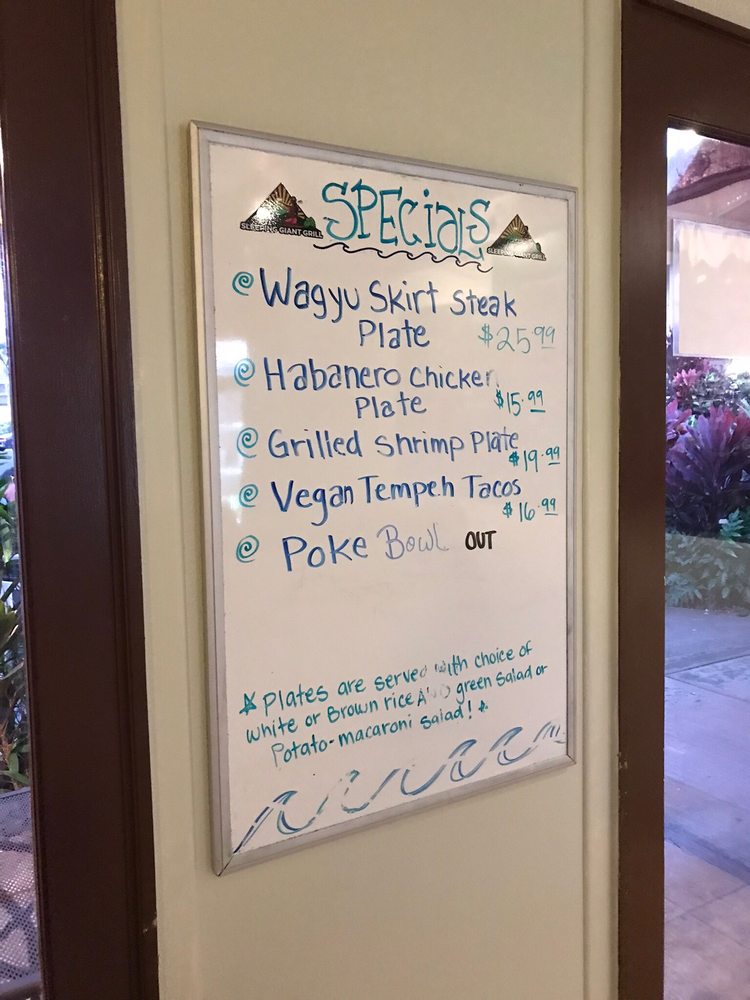 SPECiALS
SLEEPING GIANT GRILL
SLEEPING GIANT GRILL
Wagyu Skirt Steak
Plate $25.99
Habanero Chicken
Plate $15.99
Grilled Shrimp Plate
$19.99
Vegan Tempeh Tacos
$16.99
Poke Bowl OUT
Plates are served with choice of
white or Brown rice AND green salad or
Potato-macaroni salad!